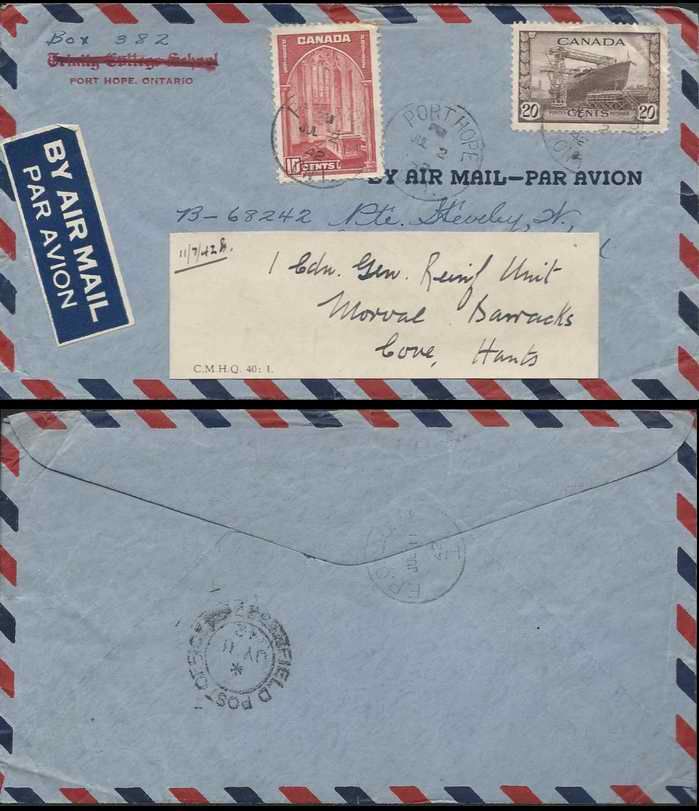 Box 382
Trinity College School
PORT HOPE, ONTARIO
CANADA
10 CENTS
CANADA
20 CENTS 20
PORT HOPE
PM
JUL 2
BY AIR MAIL
PAR AVION
BY AIR MAIL—PAR AVION
B-68242 Pte. Steveley, W,
11/7/42
1 Cdn. Gen. Reinf Unit
Morval Barracks
Cove, Hants
C.M.H.Q. 40: 1.
JUL 11
42
FIELD POST OFFICE
JY 11
42